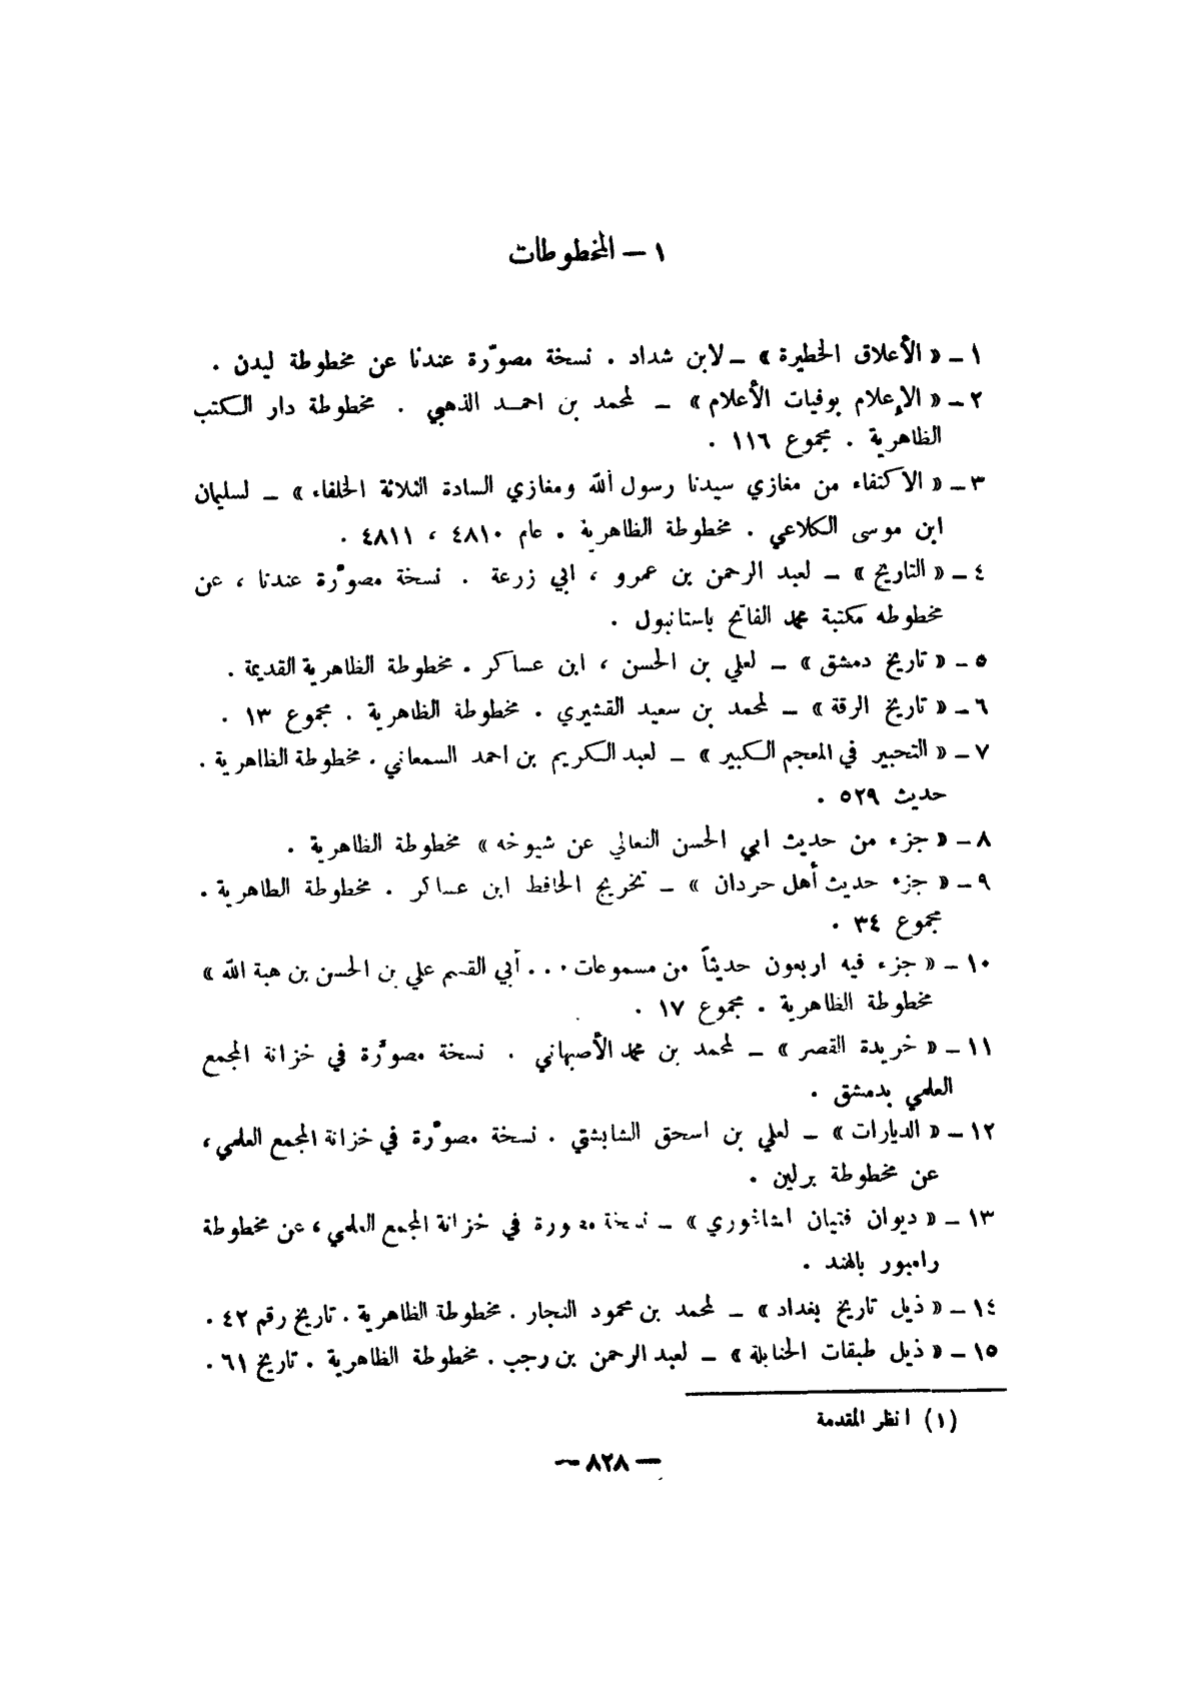 ١ – المخطوطات
١ – « الأعلاق الخطيرة » – لابن شداد . نسخة مصوّرة عندنا عن مخطوطة ليدن .
٢ – « الإعلام بوفيات الأعلام » – لمحمد بن احمد الذهبي . مخطوطة دار الكتب
الظاهرية . مجموع ١١٦ .
٣ – « الاكتفاء من مغازي سيدنا رسول الله ومغازي السادة الثلاثة الخلفاء » – لسليمان
ابن موسى الكلاعي . مخطوطة الظاهرية . عام ٤٨١٠ ، ٤٨١١ .
٤ – « التاريخ » – لعبد الرحمن بن عمرو ، ابي زرعة . نسخة مصوّرة عندنا ، عن
مخطوطه مكتبة محمد الفاتح باستانبول .
٥ – « تاريخ دمشق » – لعلي بن الحسن ، ابن عساكر . مخطوطة الظاهرية القديمة .
٦ – « تاريخ الرقة » – لمحمد بن سعيد القشيري . مخطوطة الظاهرية . مجموع ١٣ .
٧ – « التحبير في المعجم الكبير » – لعبد الكريم بن احمد السمعاني . مخطوطة الظاهرية .
حديث ٥٢٩ .
٨ – « جزء من حديث ابي الحسن النعالي عن شيوخه » مخطوطة الظاهرية .
٩ – « جزء حديث أهل حردان » – تخريج الحافظ ابن عساكر . مخطوطة الظاهرية .
مجموع ٣٤ .
١٠ – « جزء فيه اربعون حديثاً من مسموعات . . . أبي القسم علي بن الحسن بن هبة الله »
مخطوطة الظاهرية . مجموع ١٧ .
١١ – « خريدة القصر » – لمحمد بن محمد الأصبهاني . نسخة مصوّرة في خزانة المجمع
العلمي بدمشق .
١٢ – « الديارات » – لعلي بن اسحق الشابشتي . نسخة مصوّرة في خزانة المجمع العلمي ،
عن مخطوطة برلين .
١٣ – « ديوان فتيان الشاغوري » – نسخة مصورة في خزانة المجمع العلمي ، عن مخطوطة
رامبور بالهند .
١٤ – « ذيل تاريخ بغداد » – لمحمد بن محمود النجار . مخطوطة الظاهرية . تاريخ رقم ٤٢ .
١٥ – « ذيل طبقات الحنابلة » – لعبد الرحمن بن رجب . مخطوطة الظاهرية . تاريخ ٦١ .
(١) انظر المقدمة
– ٨٢٨ –